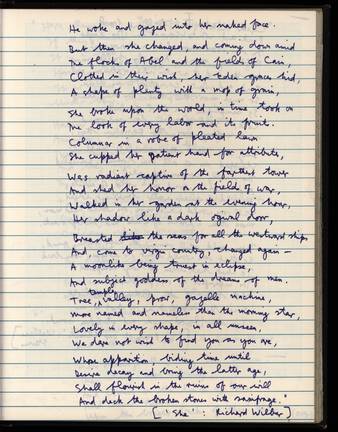 He woke and gazed into her naked face.
But then she changed, and coming down amid
The flocks of Abel and the fields of Cain,
Clothed in their wish, her Eden graces hid,
A shape of plenty with a mop of grain,
She broke upon the world, in time took on
The look of every labor and its fruit.
Columnar in a robe of pleated lawn
She cupped her patient hand for attribute,
Was radiant captive of the farthest tower
And shed her honor on the fields of war,
Walked in her garden at the evening hour,
Her shadow like a dark ogival door,
Breasted the seas for all the westward ships
And, come to virgin country, changed again—
A moonlike being truest in eclipse,
And subject goddess of the dreams of men.
temple,
Tree, valley, prow, gazelle, machine,
More named and nameless than the morning star,
Lovely in every shape, in all unseen,
We dare not wish to find you as you are,
Whose apparition, biding time until
Desire decay and bring the latter age,
Shall flourish in the ruins of our will
And deck the broken stones with saxifrage."
['She': Richard Wilbur]